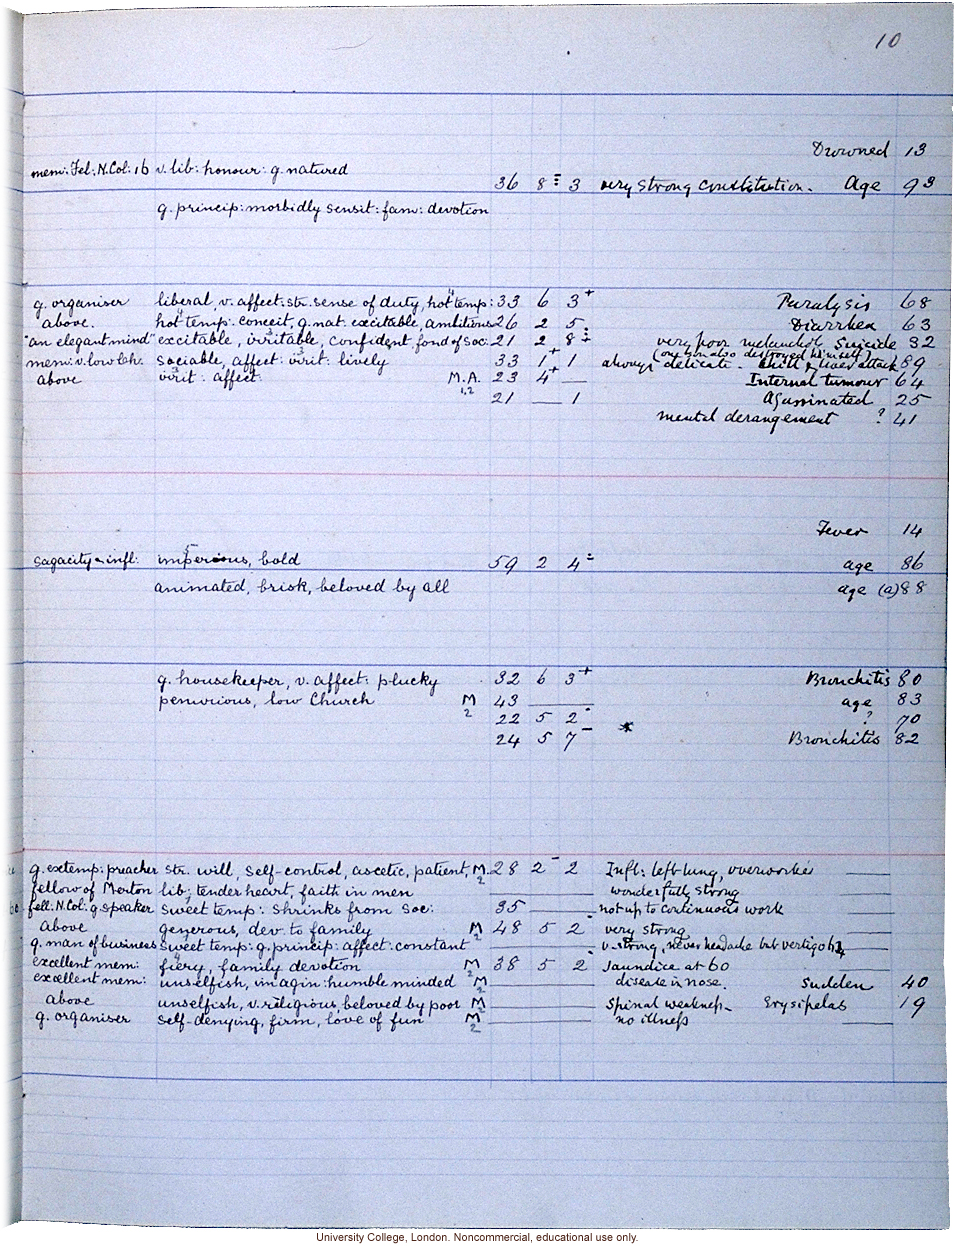 10
Drowned 13
mem: Fel: N. Col: 16 v. lib: honour: g. natured
36 8 3 very strong constitution. Age 93
g. princip: morbidly sensit: fam: devotion
g. organiser liberal, v. affect: str. sense of duty, hot temp: 33 6 3+ Paralysis 68
above. hot temp. conceit, g. nat. excitable, ambitious 26 2 5 Diarrhea 63
"an elegant mind" excitable, irritable, confident, fond of soc: 21 2 8 very poor melanchol, Suicide 32
(one son also destroyed himself)
mem: v. low Ch. sociable, affect: irrit: lively 33 1+ 1 always delicate. attack 89
above irrit: affect: M.A. 23 4+ — Internal tumour 64
1,2 21 — 1 Assassinated 25
mental derangement ? 41
Fever 14
sagacity & infl: imperious, bold 59 2 4 age 86
5
animated, brisk, beloved by all age (a) 88
g. housekeeper, v. affect: plucky 32 6 3+ Bronchitis 80
penurious, low Church M 2 43 — age 83
22 5 2 ? 70
24 5 7 * Bronchitis 82
g. extemp: preacher str. will, self-control, ascetic, patient, M. 2 28 2 2 Inft: left lung, overworks
fellow of Merton lib: tender heart, faith in men wonderfully strong
fell: N. Col: g. speaker sweet temp: shrinks from Soc: 35 — not up to continuous work
above generous, dev. to family M 2 48 5 2 very strong
g. man of business sweet temp: g. princip: affect: constant v. strong, never headache but vertigo
excellent mem: fiery, family devotion M 2 38 5 2 Jaundice at 60
excellent mem: unselfish, imagin: humble minded M 2 disease in nose. Sudden 40
above unselfish, v. religious, beloved by poor M 2 Spinal weakness Erysipelas 19
g. organiser self-denying, firm, love of fun M 2 no illness
University College, London. Noncommercial, educational use only.